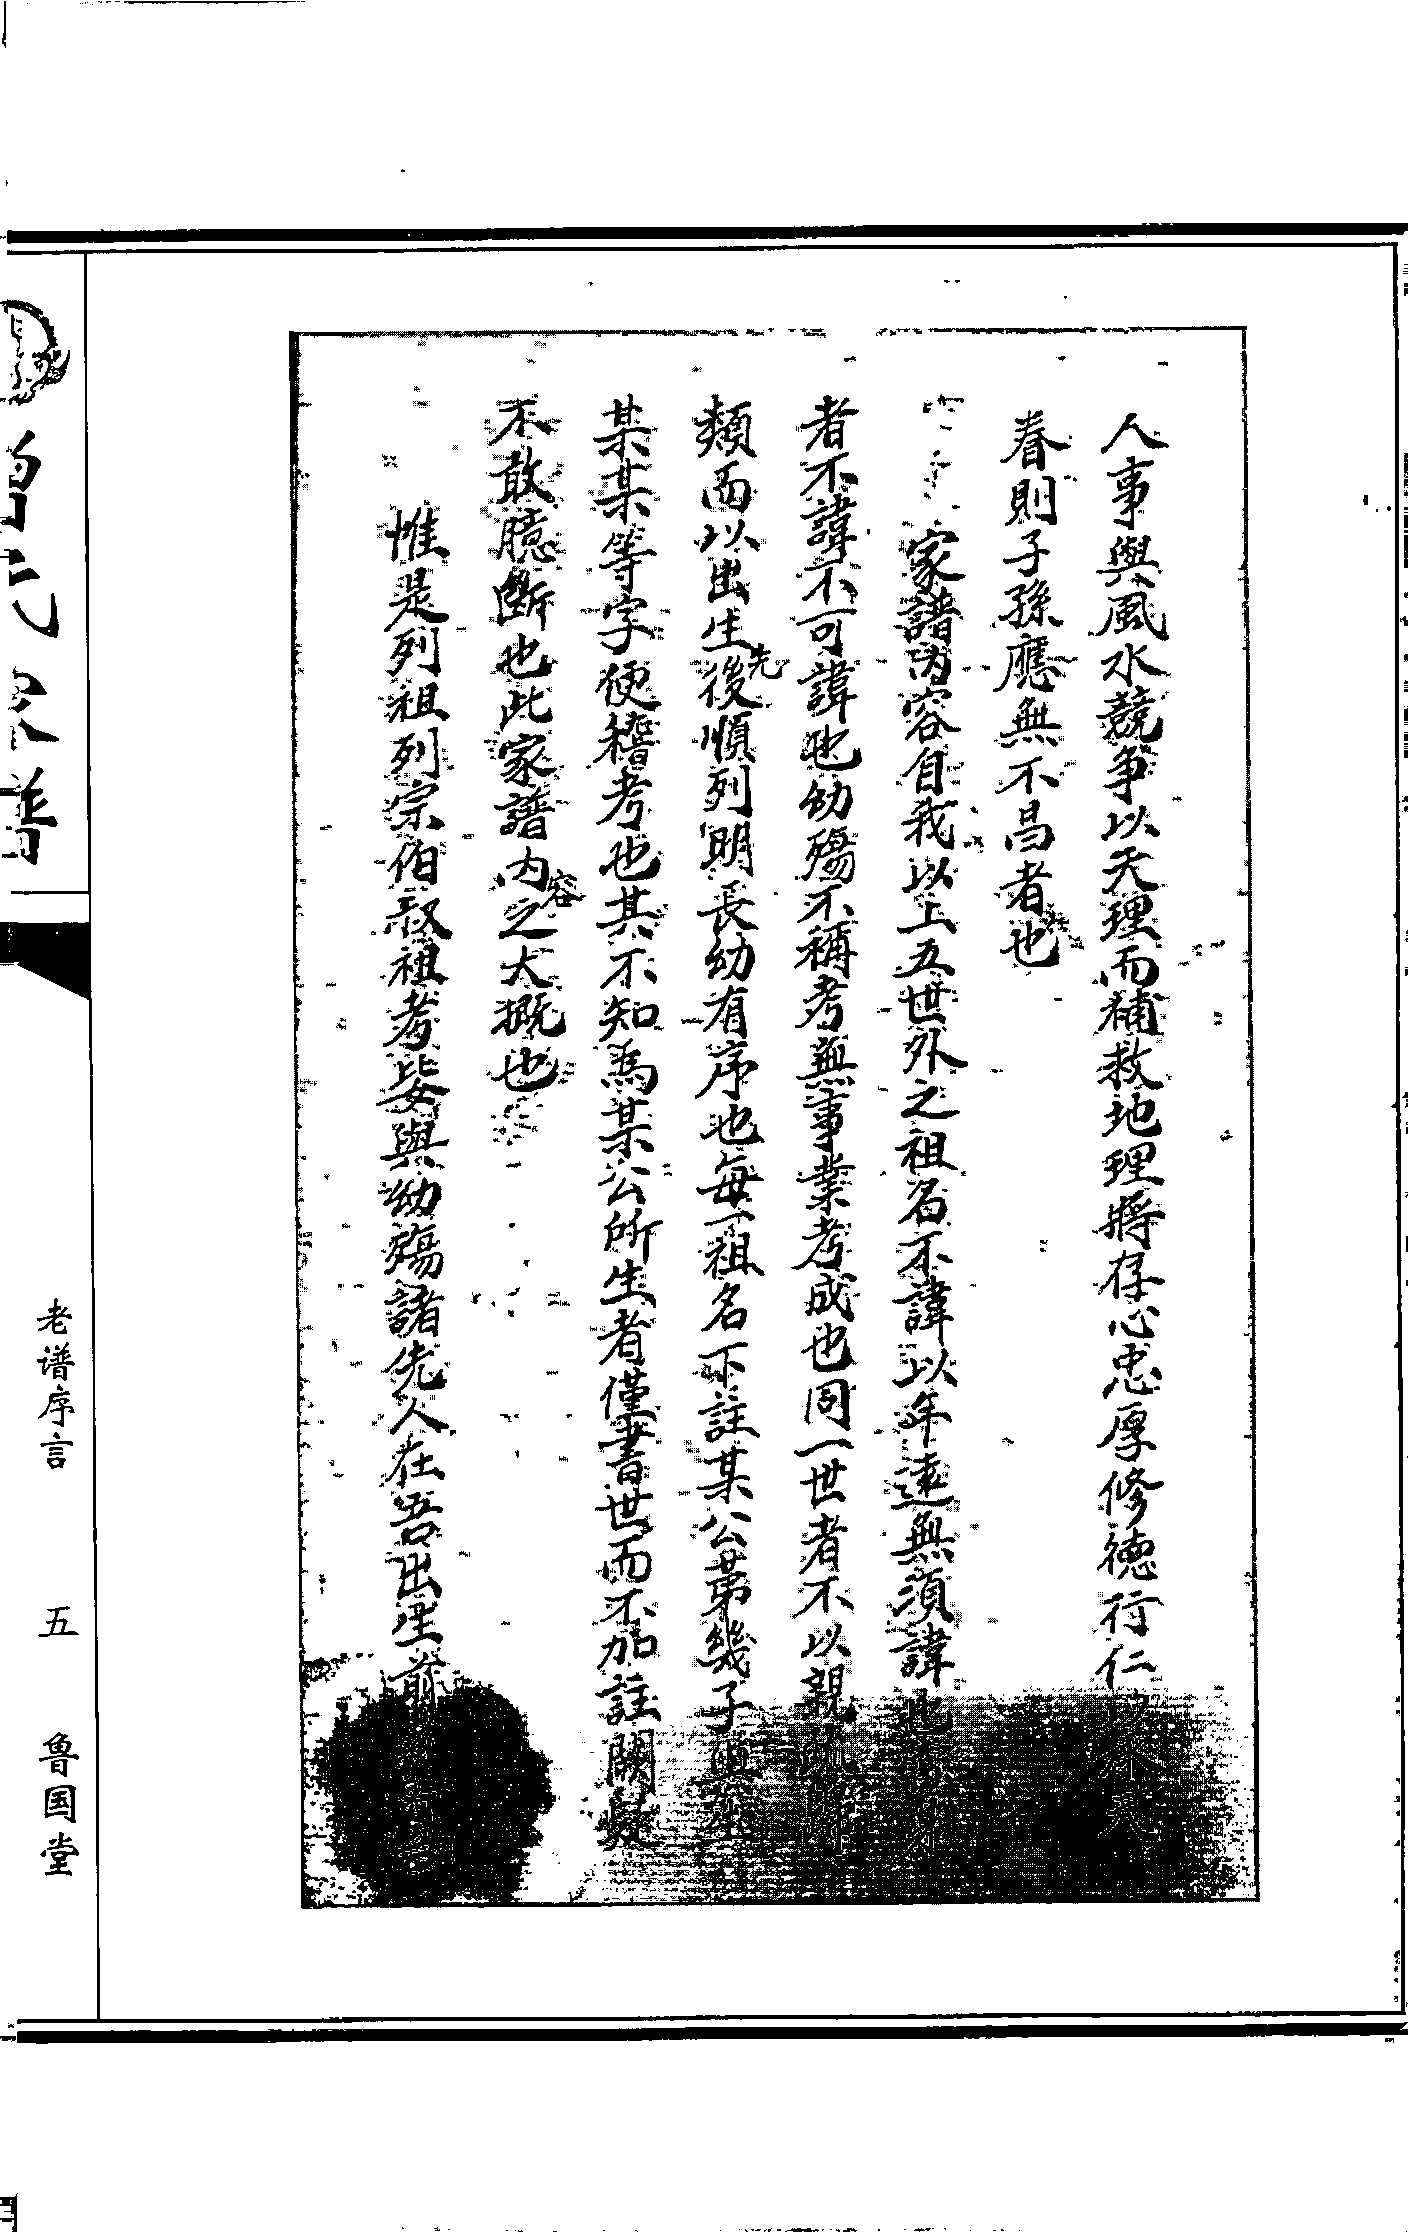 人事與風水競爭以天理而補救地理將存心忠厚修德行仁
春則子孫應無不昌者也
家譜內容自我以上五世外之祖名不諱以年遠無須諱也
者不諱不可諱也幼殤不稱考無事業考成也同一世者不以親
類而以出生先後順列明長幼有序也每一祖名下註某公第幾子與
某某等字便稽考也其不知為某公所生者僅書世而不加註闕疑
不敢臆斷也此家譜內容之大概也
惟是列祖列宗伯叔祖考妣與幼殤諸先人在吾出生前
氏家譜
老谱序言
五
鲁国堂